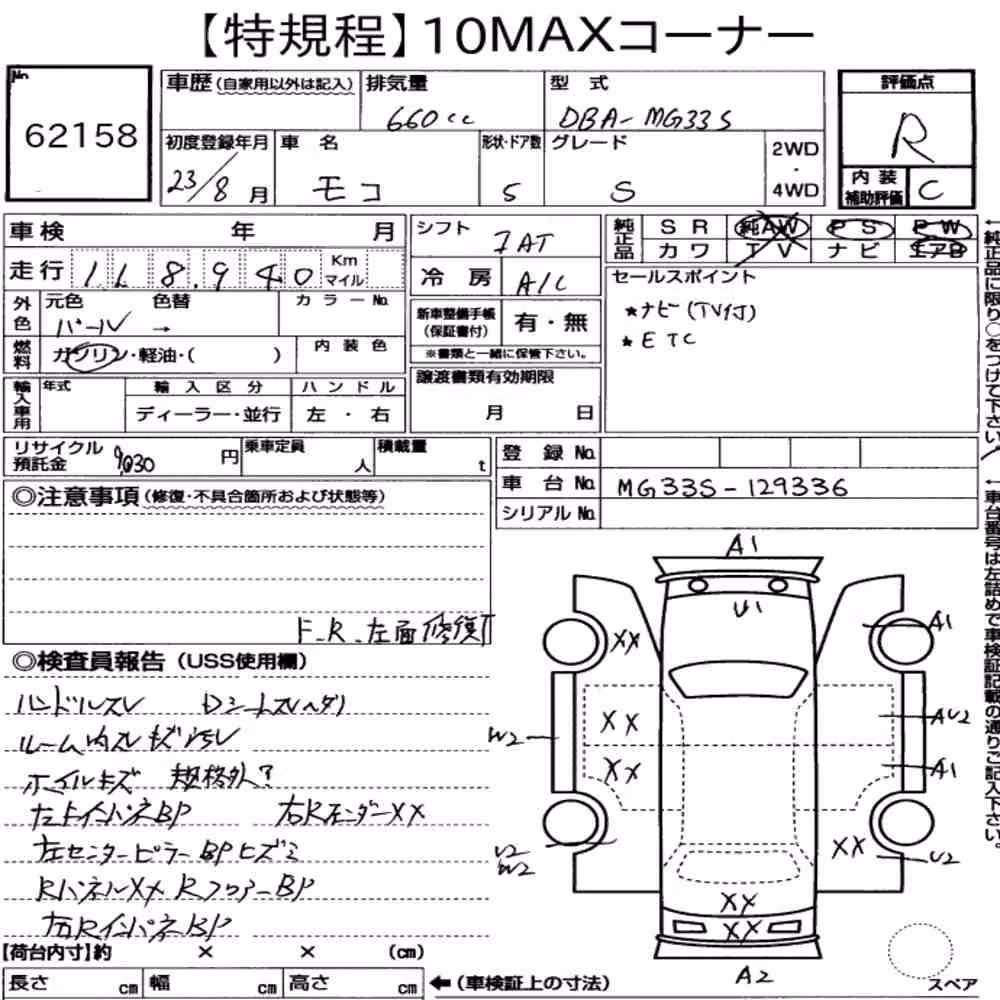 【特規程】10MAXコーナー
No.
62158
車歴(自家用以外は記入)
排気量
660cc
型 式
DBA-MG33S
評価点
R
初度登録年月
23/8月
車 名
モコ
形状・ドア数
5
グレード
S
2WD
・
4WD
内 装
補助評価
C
車検 年 月
走行 118,940 Km マイル
シフト
7AT
冷 房
A/C
純正品
S R 純AW P S P W
カ ワ T V ナ ビ エアB
外色
元色 色替
パール →
カラーNo.
燃料
ガソリン・軽油・( )
内 装 色
新車整備手帳
(保証書付)
有・無
※書類と一緒に保管下さい。
セールスポイント
★ナビ(TV付)
★ETC
輸入車用
年式
輸 入 区 分
ディーラー・並行
ハ ン ド ル
左 ・ 右
譲渡書類有効期限
月 日
←純正品に限り○をつけて下さい。
リサイクル
預託金
9,030 円
乗車定員
人
積載量
t
登 録 No.
車 台 No.
MG33S-129336
シリアル No.
←車台番号は左詰めで車検証記載の通りご記入下さい。
◎注意事項(修復・不具合箇所および状態等)
F.R.左面修復
◎検査員報告(USS使用欄)
ハンドルスレ Dシートスレヘタリ
ルーム内スレキズ
ホイルキズ 規格外?
BP 右Rフェンダー××
左センターピラーBPヒズミ
Rパネル×× RフロアーBP
右RインパネBP
A1
U1
××
A1
××
××
W2
AU2
A1
U2
W2
××
U2
××
××
A2
スペア
【荷台内寸】約 × × (cm)
長さ cm 幅 cm 高さ cm ←(車検証上の寸法)